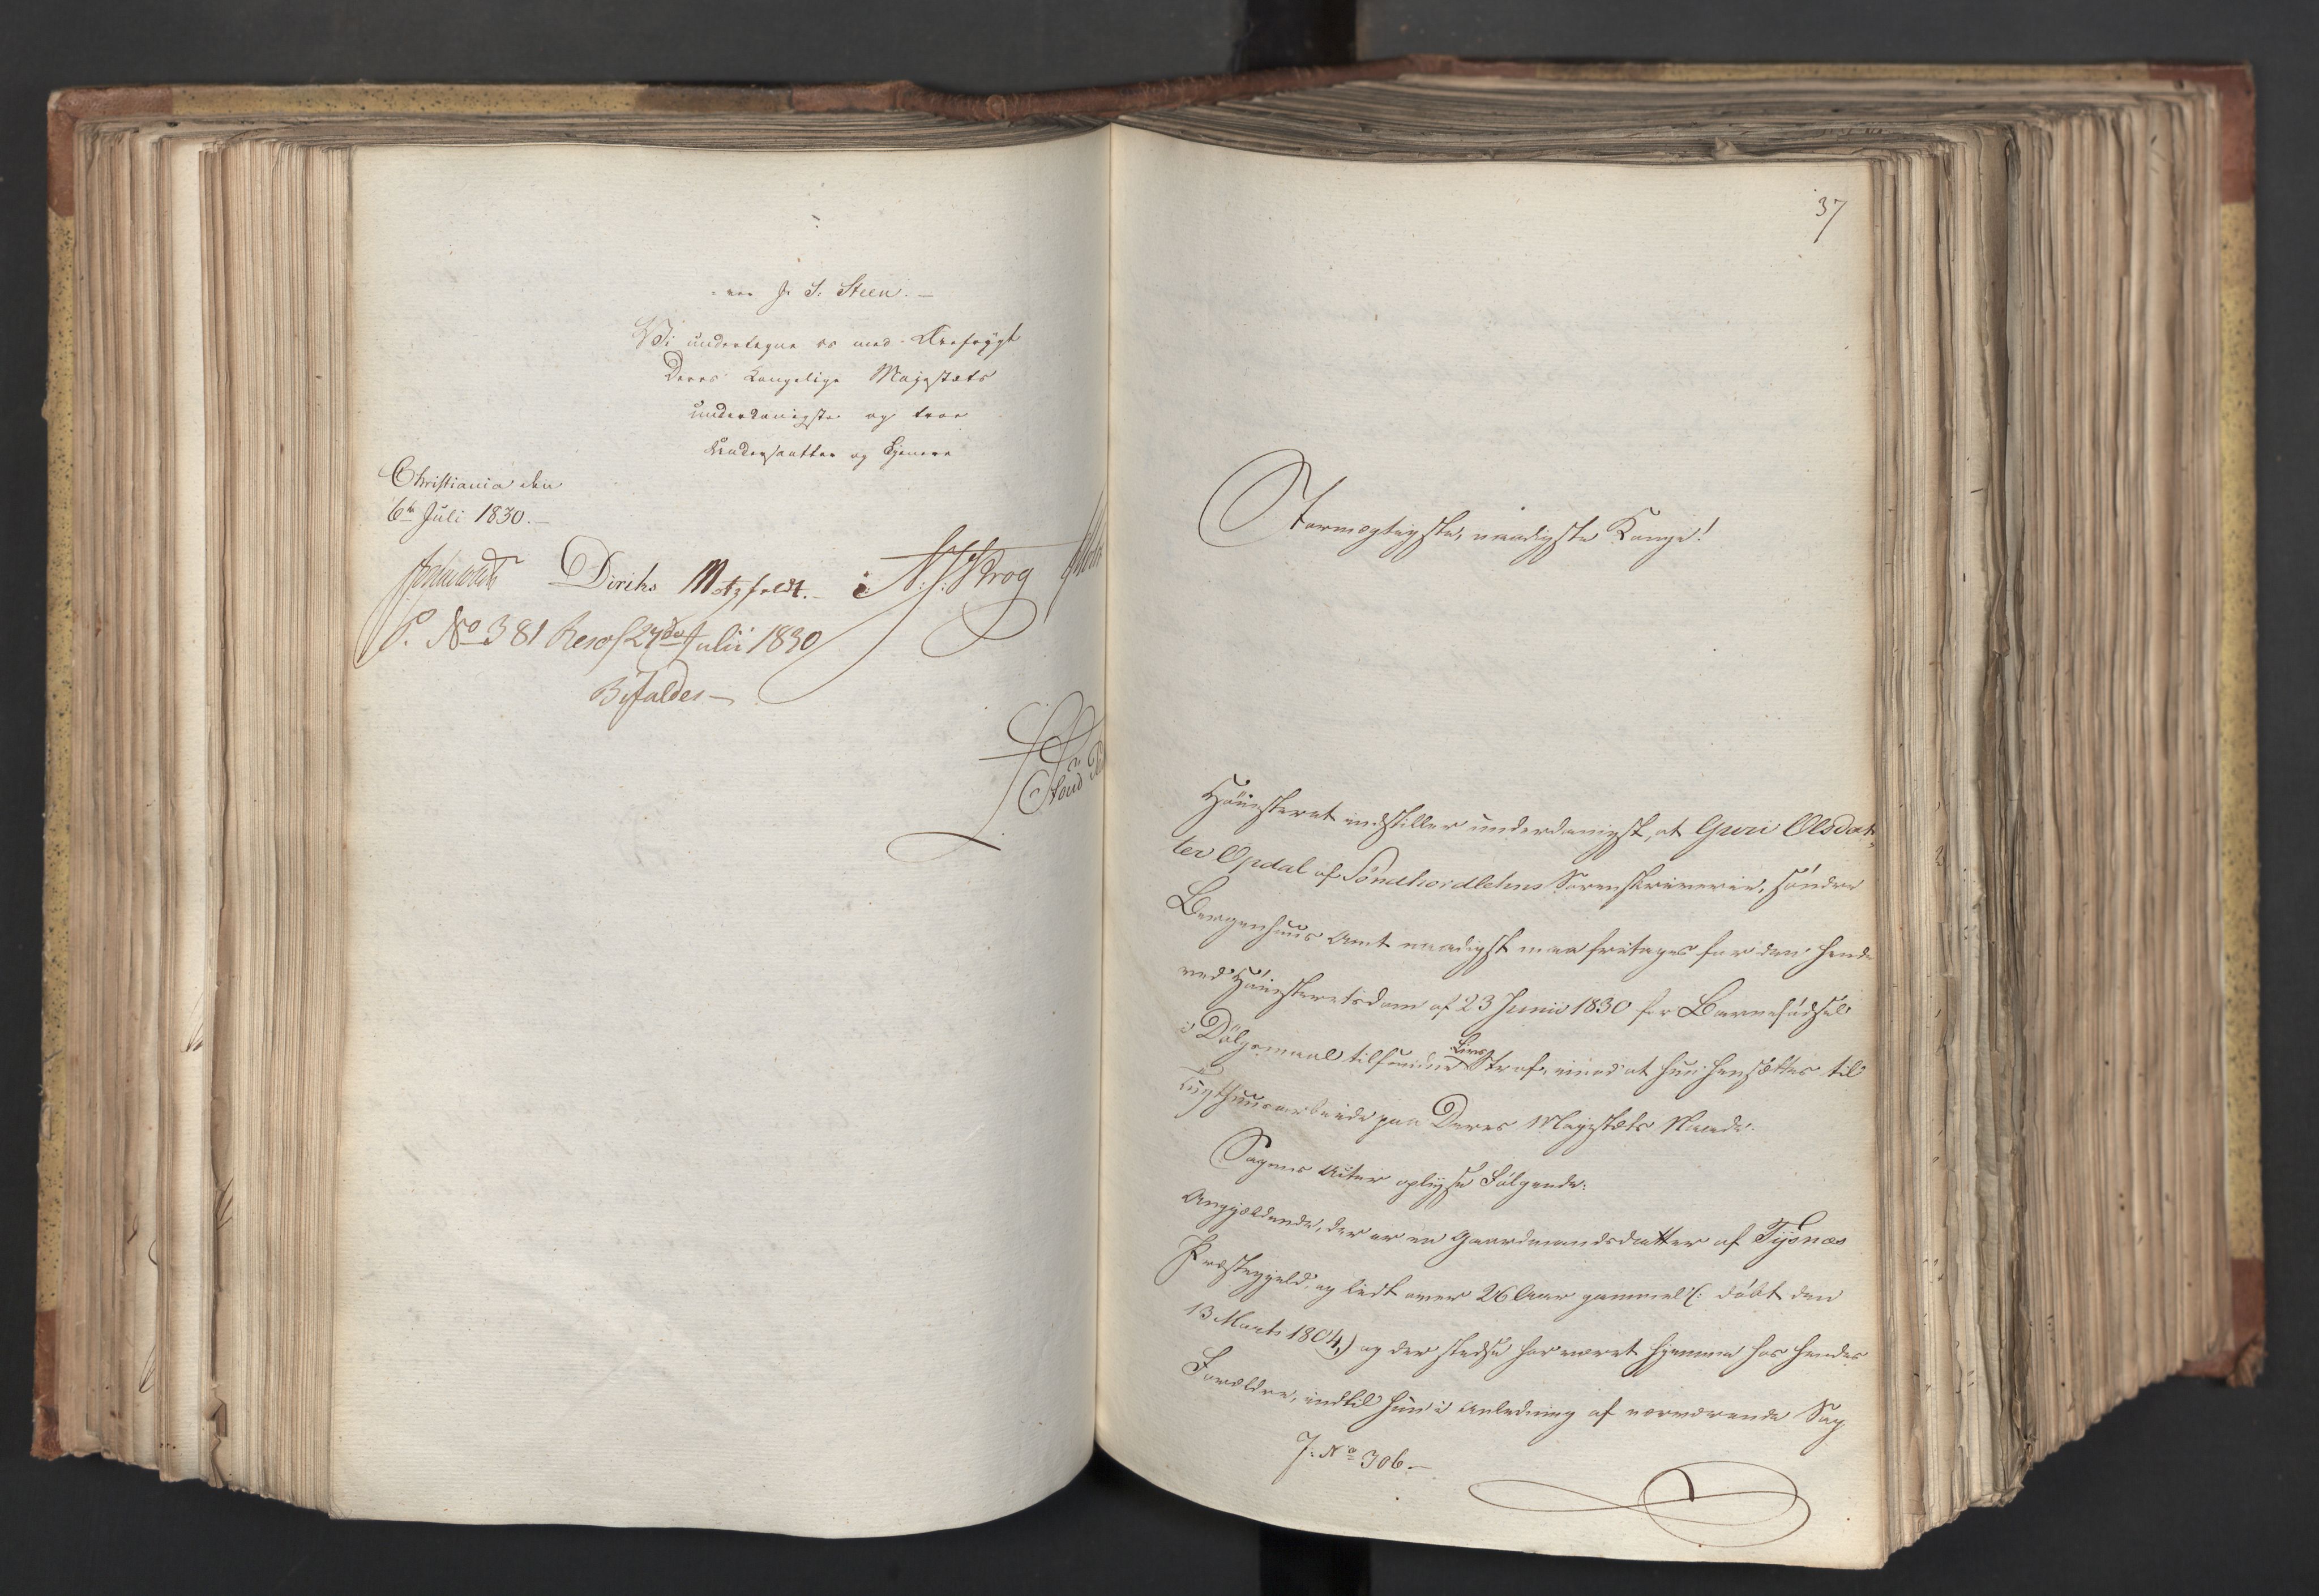 J: S: Steen. —
Vi undertegne os med Ærefrygt
Deres Kongelige Majestæts
underdanigste og troe
Undersaatter og Tjenere
Christiania den
6te Juli 1830. —
Diriks Motzfeldt. N. J. Krog
P. No 381 Resol 27de Julii 1830
Bifaldes —
37
Stormægtigste, naadigste Konge!
Höiesteret indstiller underdanigst, at Guri Olsdat-
ter Opdal af Söndhordlehns Sorenskriverie, söndre
Bergenhuus Amt naadigst maa fritages for den hende
ved Höiesteretsdom af 23 Junii 1830 for Barnefödsel
i Dölgsmaal tilfundne Livs Straf, imod at hun hensættes til
Tugthuusarbeide paa Deres Majestæts Naade.
Sagens Acter oplyse Fölgende:
Angjældende, der er en Gaardmandsdatter af Tysnæs
Præstegjeld, og lidt over 26 Aar gammel (: döbt den
13 Marts 1804,) og der stedse har været hjemme hos hendes
Forældre, indtil hun i Anledning af nærværende Sag
J: No 306. —